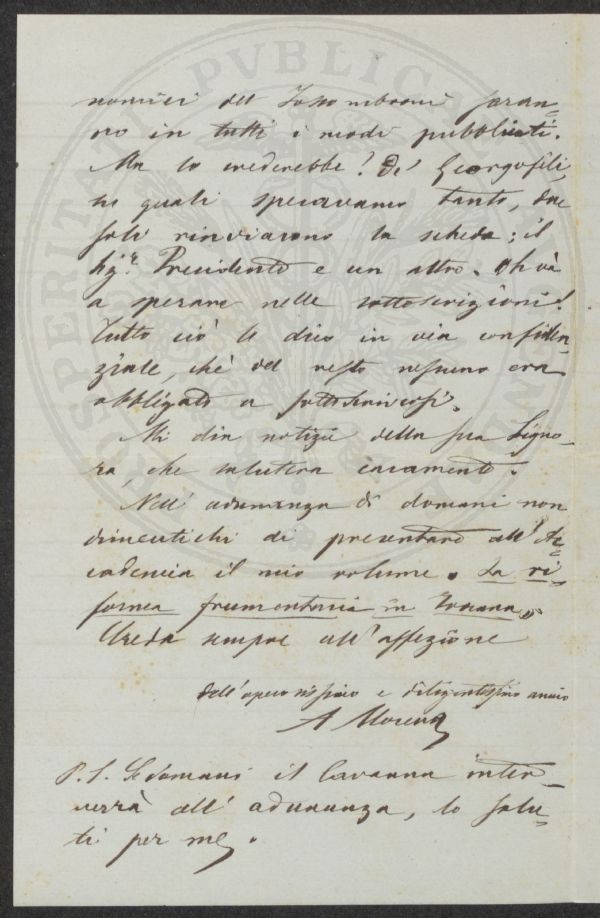 nomici del Fossombroni saran=
no in tutti i modi pubblicati.
Ma lo crederebbe? De' Georgofili,
ne quali speravamo tanto, due
soli rinviarono la scheda; il
Sig.r Presidente e un altro. Oh và
a sperare nelle sottoscrizioni!
Tutto ciò le dico in via confiden=
ziale, chè del resto nessuno era
obbligato a sottoscriversi.
Mi dia notizie della sua Signo=
ra, che saluterà caramente.
Nell' adunanza di domani non
dimentichi di presentare all' Ac=
cademia il mio volume. La ri=
forma frumentaria in Toscana„
Creda sempre all' affezione
dell' and diligentissimo amico
A Morena
P.S. Se domani il Cavanna inter=
verrà all' adunanza, lo salu=
ti per me.
PROSPERITATI PVBLICAE